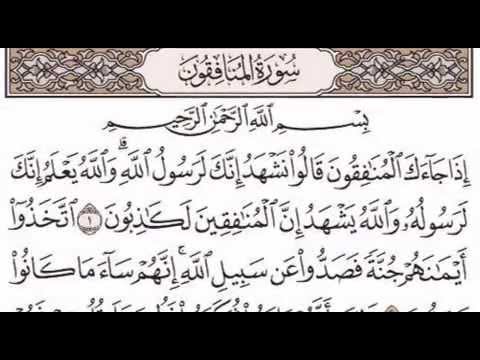 سُورَةُ الْمُنَافِقُونَ
بِسْمِ ٱللَّهِ ٱلرَّحْمَٰنِ ٱلرَّحِيمِ
إِذَا جَآءَكَ ٱلْمُنَٰفِقُونَ قَالُوا۟ نَشْهَدُ إِنَّكَ لَرَسُولُ ٱللَّهِ ۗ وَٱللَّهُ يَعْلَمُ إِنَّكَ
لَرَسُولُهُۥ وَٱللَّهُ يَشْهَدُ إِنَّ ٱلْمُنَٰفِقِينَ لَكَٰذِبُونَ ١ ٱتَّخَذُوٓا۟
أَيْمَٰنَهُمْ جُنَّةً فَصَدُّوا۟ عَن سَبِيلِ ٱللَّهِ ۚ إِنَّهُمْ سَآءَ مَا كَانُوا۟